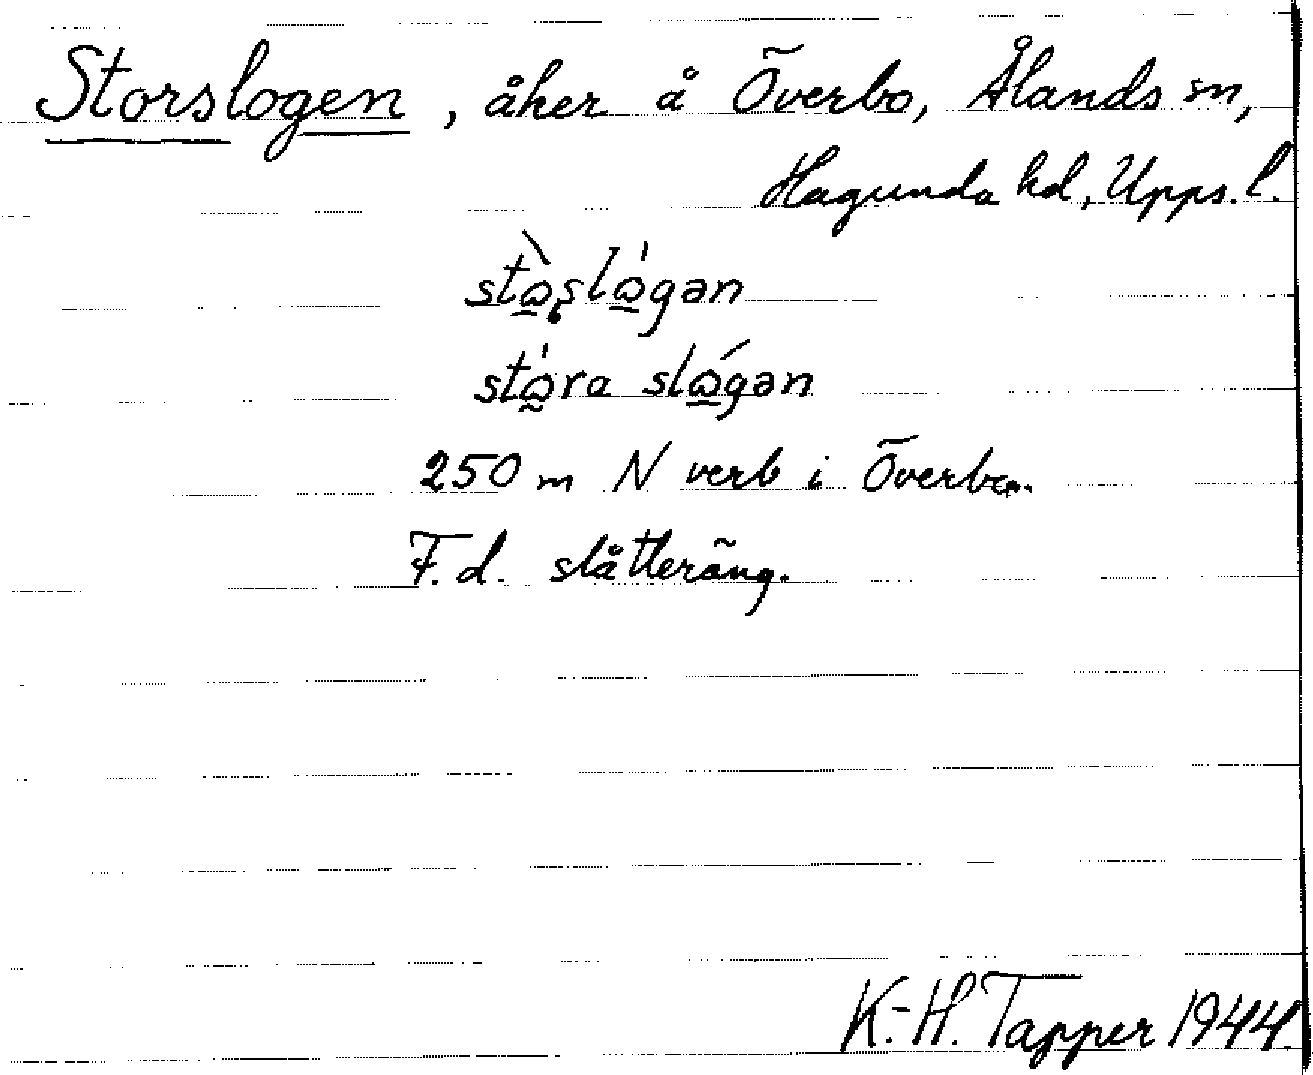 Storslogen, åker å Överbo, Ålands sn,
Hagunda hd, Upps. l.
stɷ̀ʂlɷ́gən
stɷ́ra slɷ́gən
250 m N verb i Överbo.
F.d. slåtteräng.
K.-H. Tapper 1944.